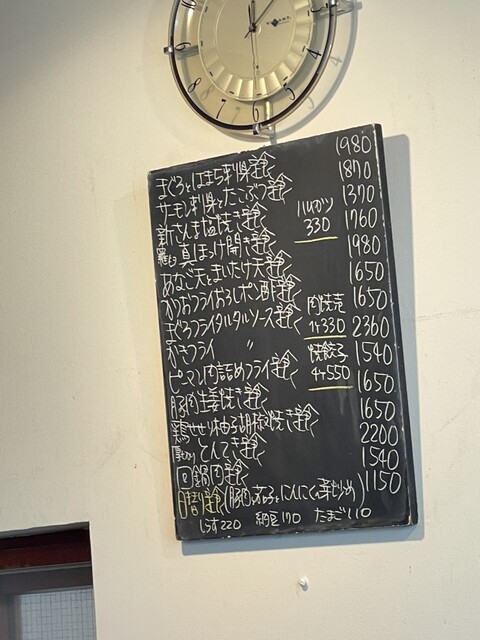 まぐろとはまち刺身定食 1980
サーモン刺身とたこぶつ定食 1870
新さんま塩焼き定食 1370
羅臼真ほっけ開き定食 1760
あなご天とまいたけ天定食 1980
かつおフライおろしポン酢定食 1650
まぐろフライタルタルソース定食 1650
かきフライ 〃 2360
ピーマン肉詰めフライ定食 1540
豚肉生姜焼き定食 1650
鶏せせり柚子胡椒焼き定食 1650
厚切りとんてき定食 2200
回鍋肉定食 1540
日替り定食(豚肉となすとにんにくの芽炒め) 1150
しらす220 納豆110 たまご110
ハムカツ
330
肉焼売
1ヶ330
焼餃子
4ヶ550